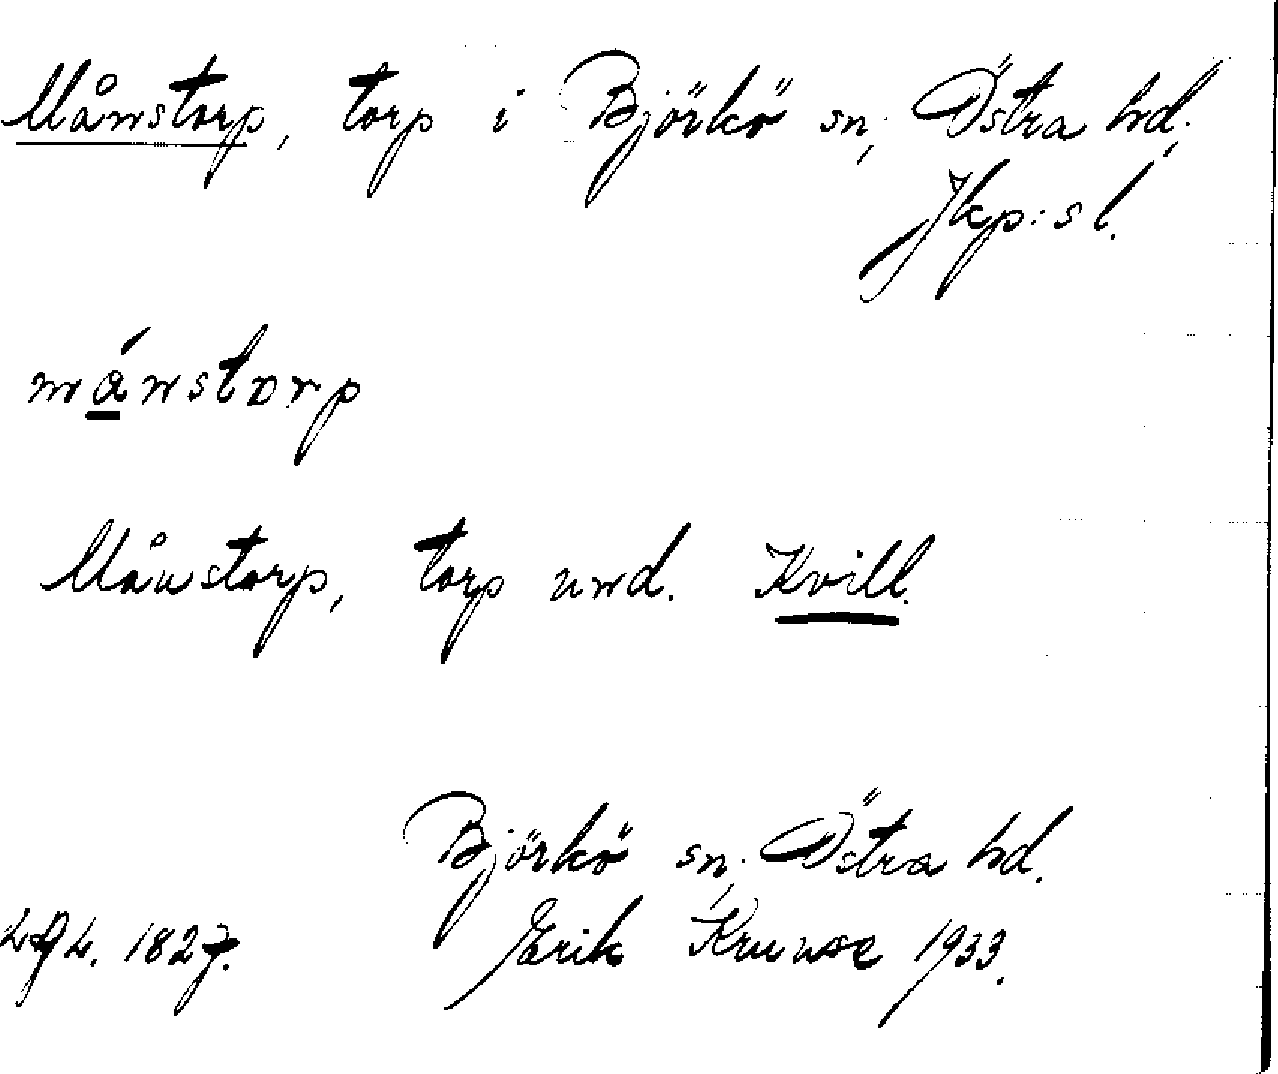 Månstorp, torp i Björkö sn, Östra hd,
Jkp:s l.
mánstorp
Månstorp, torp und. Kvill.
Björkö sn, Östra hd.
1827. Erik 1933.